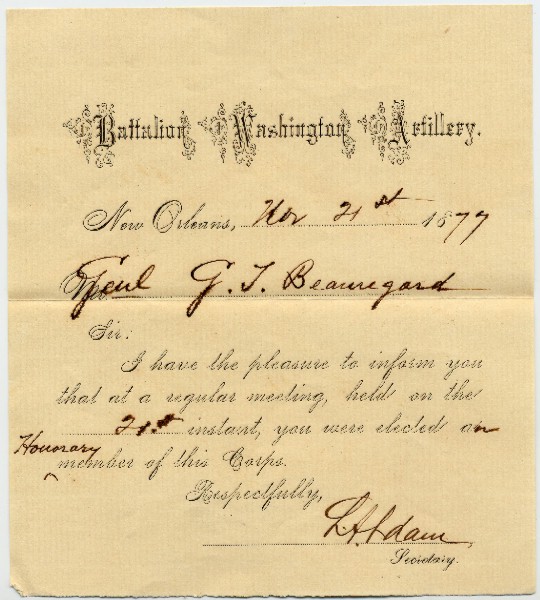 Battalion Washington Artillery.
New Orleans, Nov 21st 1877
Genl G. T. Beauregard
Sir:
I have the pleasure to inform you
that at a regular meeting, held on the
21st instant, you were elected an
Honorary
member of this Corps.
Respectfully,
L. A. Adam
Secretary.